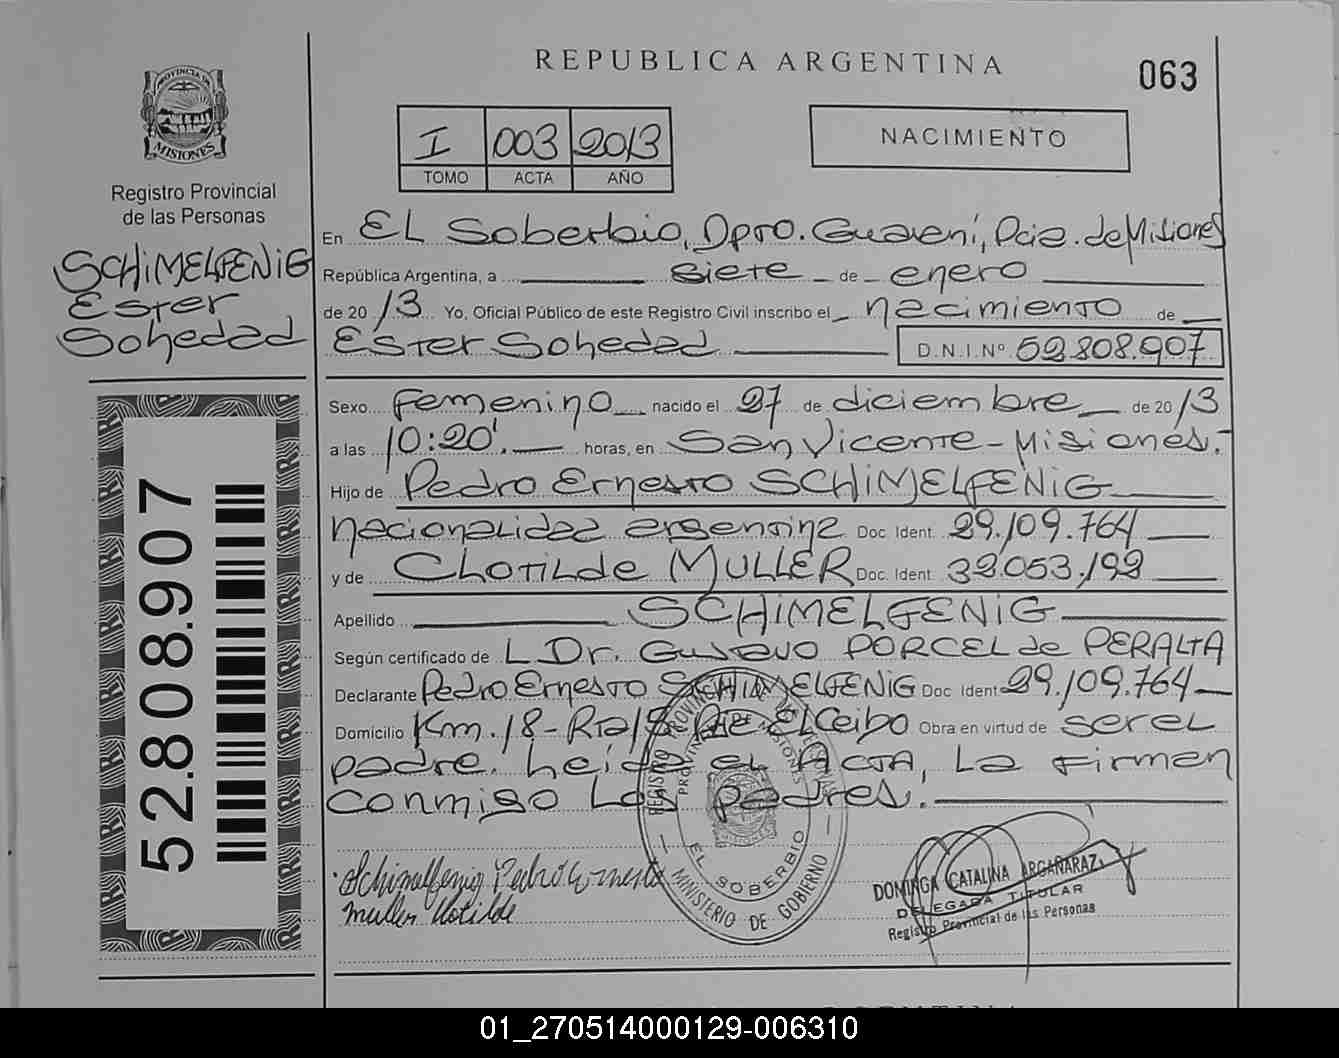 REPUBLICA ARGENTINA
063
PROVINCIA DE
MISIONES
Registro Provincial
de las Personas
SCHIMELFENIG
Ester
Soledad
I 003 2013
TOMO ACTA AÑO
NACIMIENTO
En EL Soberbio, Dpto. Guaraní, Pcia. de Misiones
República Argentina, a siete de enero
de 2013 Yo, Oficial Público de este Registro Civil inscribo el nacimiento de
Ester Soledad D.N.I.Nº 52.808.907
Sexo femenino nacido el 27 de diciembre de 2013
a las 10:20'. horas, en San Vicente - Misiones.
Hijo de Pedro Ernesto SCHIMELFENIG
nacionalidad argentina Doc. Ident. 29.109.764
y de Clotilde MULLER Doc. Ident. 32.053.192
Apellido SCHIMELFENIG
Según certificado de L Dr. Gustavo PORCEL de PERALTA
Declarante Pedro Ernesto SCHIMELFENIG Doc. Ident. 29.109.764
Domicilio Km. 18 - Rta 18 Pje El Ceibo Obra en virtud de ser el
padre. Leida el ACTA, La firman
conmigo Los padres.
52.808.907
Schimelfenig Pedro Ernesto
Muller Klotilde
EL SOBERBIO
MINISTERIO DE GOBIERNO
DOMINGA CATALINA ARGAÑARAZ
DELEGADA TITULAR
Registro Provincial de las Personas
01_270514000129-006310